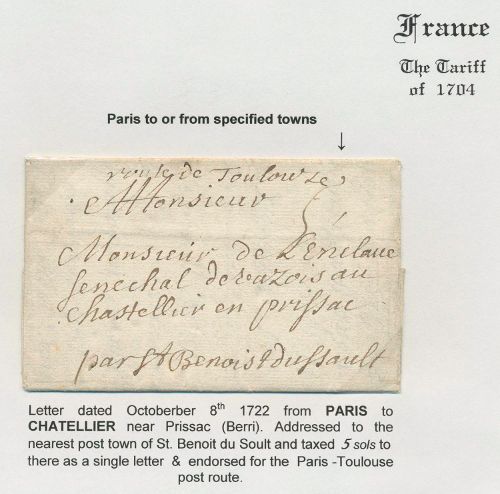 France
The Tariff
of 1704
Paris to or from specified towns
↓
route de Toulouze
Monsieur
5
Monsieur de L'enclave
senechal de razois au
chastellier en prissac
par st Benoist dussault
Letter dated Octoberber 8th 1722 from PARIS to
CHATELLIER near Prissac (Berri). Addressed to the
nearest post town of St. Benoit du Soult and taxed 5 sols to
there as a single letter & endorsed for the Paris -Toulouse
post route.